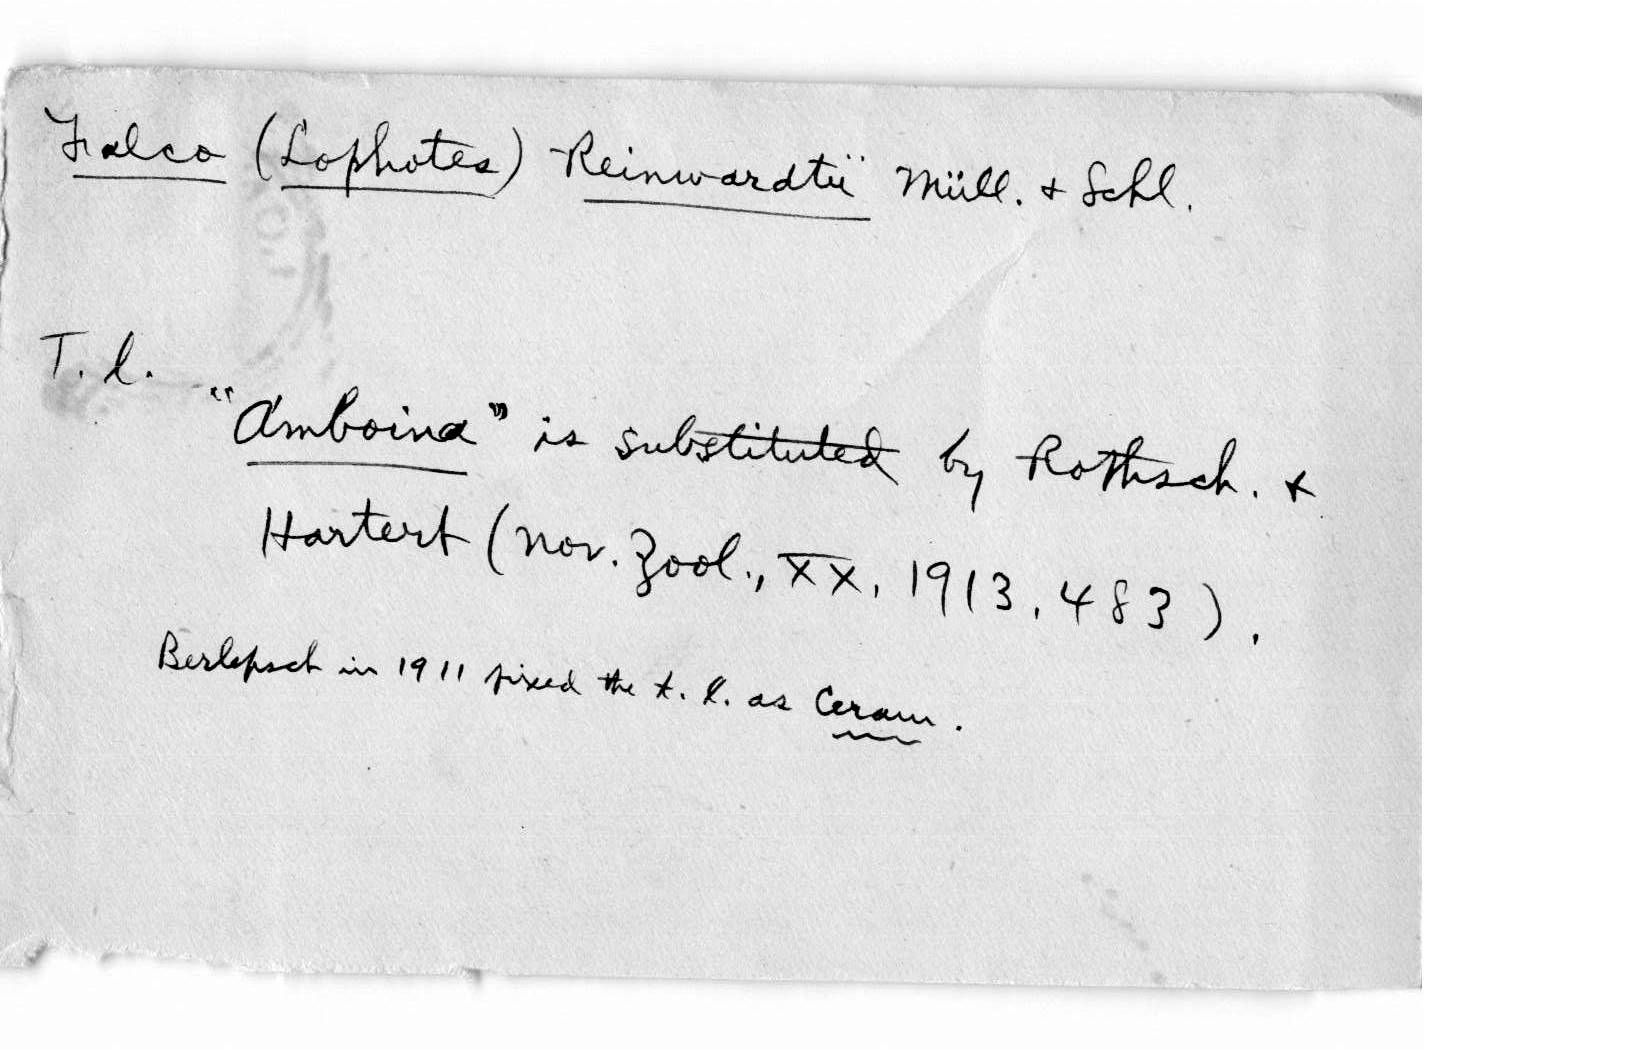 Falco (Lophotes) Reinwardtii Müll. & Schl.
T. l.
"Amboina" is substituted by Rothsch. &
Hartert (Nov. Zool., XX, 1913, 483).
Berlepsch in 1911 fixed the t. l. as Ceram.